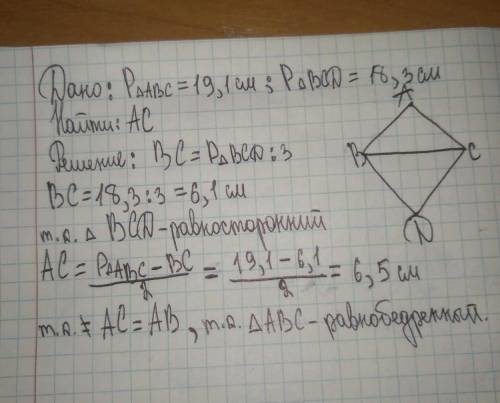 Дано: P△ABC = 19,1 см ; P△BCD = 18,3 см
Найти: AC
Решение: BC = P△BCD : 3
BC = 18,3 : 3 = 6,1 см
т.к. △ BCD - равносторонний
AC = P△ABC - BC / 2 = 19,1 - 6,1 / 2 = 6,5 см
т.к. AC = AB , т.к. △ABC - равнобедренный.
A
B
C
D